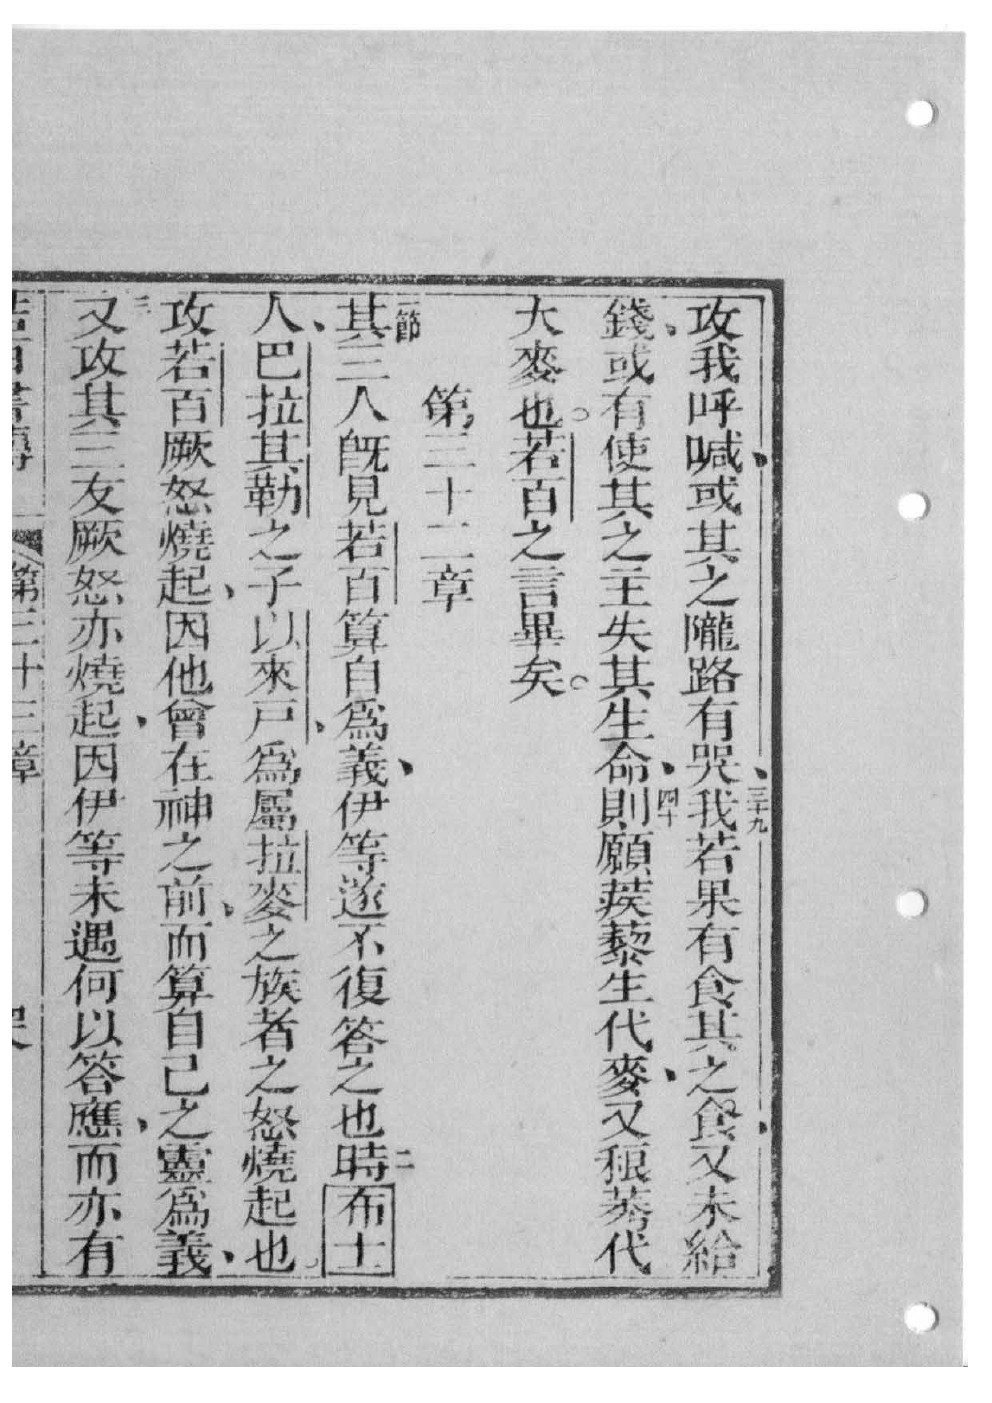 攻我呼喊、或其之隴路有哭、三十九我若果有食其之食、又未給
錢、或有使其之主失其生命、四十則願蒺藜生代麥、又稂莠代
大麥也。若百之言畢矣。
第三十二章
一節其三人旣見若百算自爲義、伊等遂不復答之也時二布士
人、巴拉其勒之子以來戸、爲屬拉麥之族者之怒燒起也。
攻若百厥怒燒起、因他曾在神之前、而算自己之靈爲義、
三又攻其三友厥怒亦燒起、因伊等未遇何以答應、而亦有
第三十三章